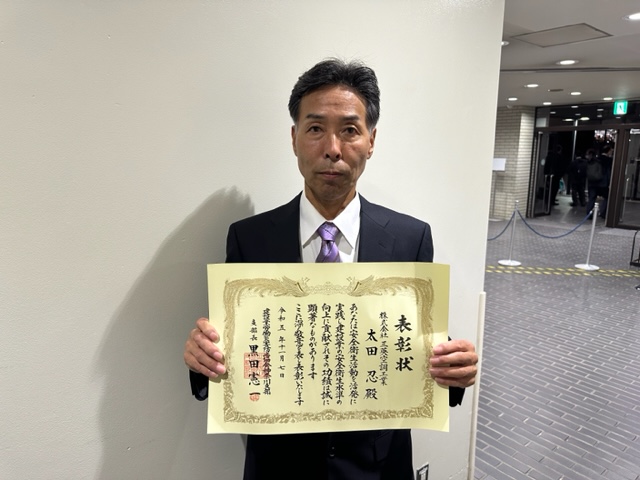 表彰状
株式会社 三英空調工業
太田 忍 殿
あなたは安全衛生活動を活発に
実践し建設業の安全衛生水準の
向上に貢献されその功績は誠に
顕著なものがあります
ここに深く敬意を表し表彰いたします
令和五年十一月七日
建設業労働災害防止協会神奈川支部
支部長 黒田憲一